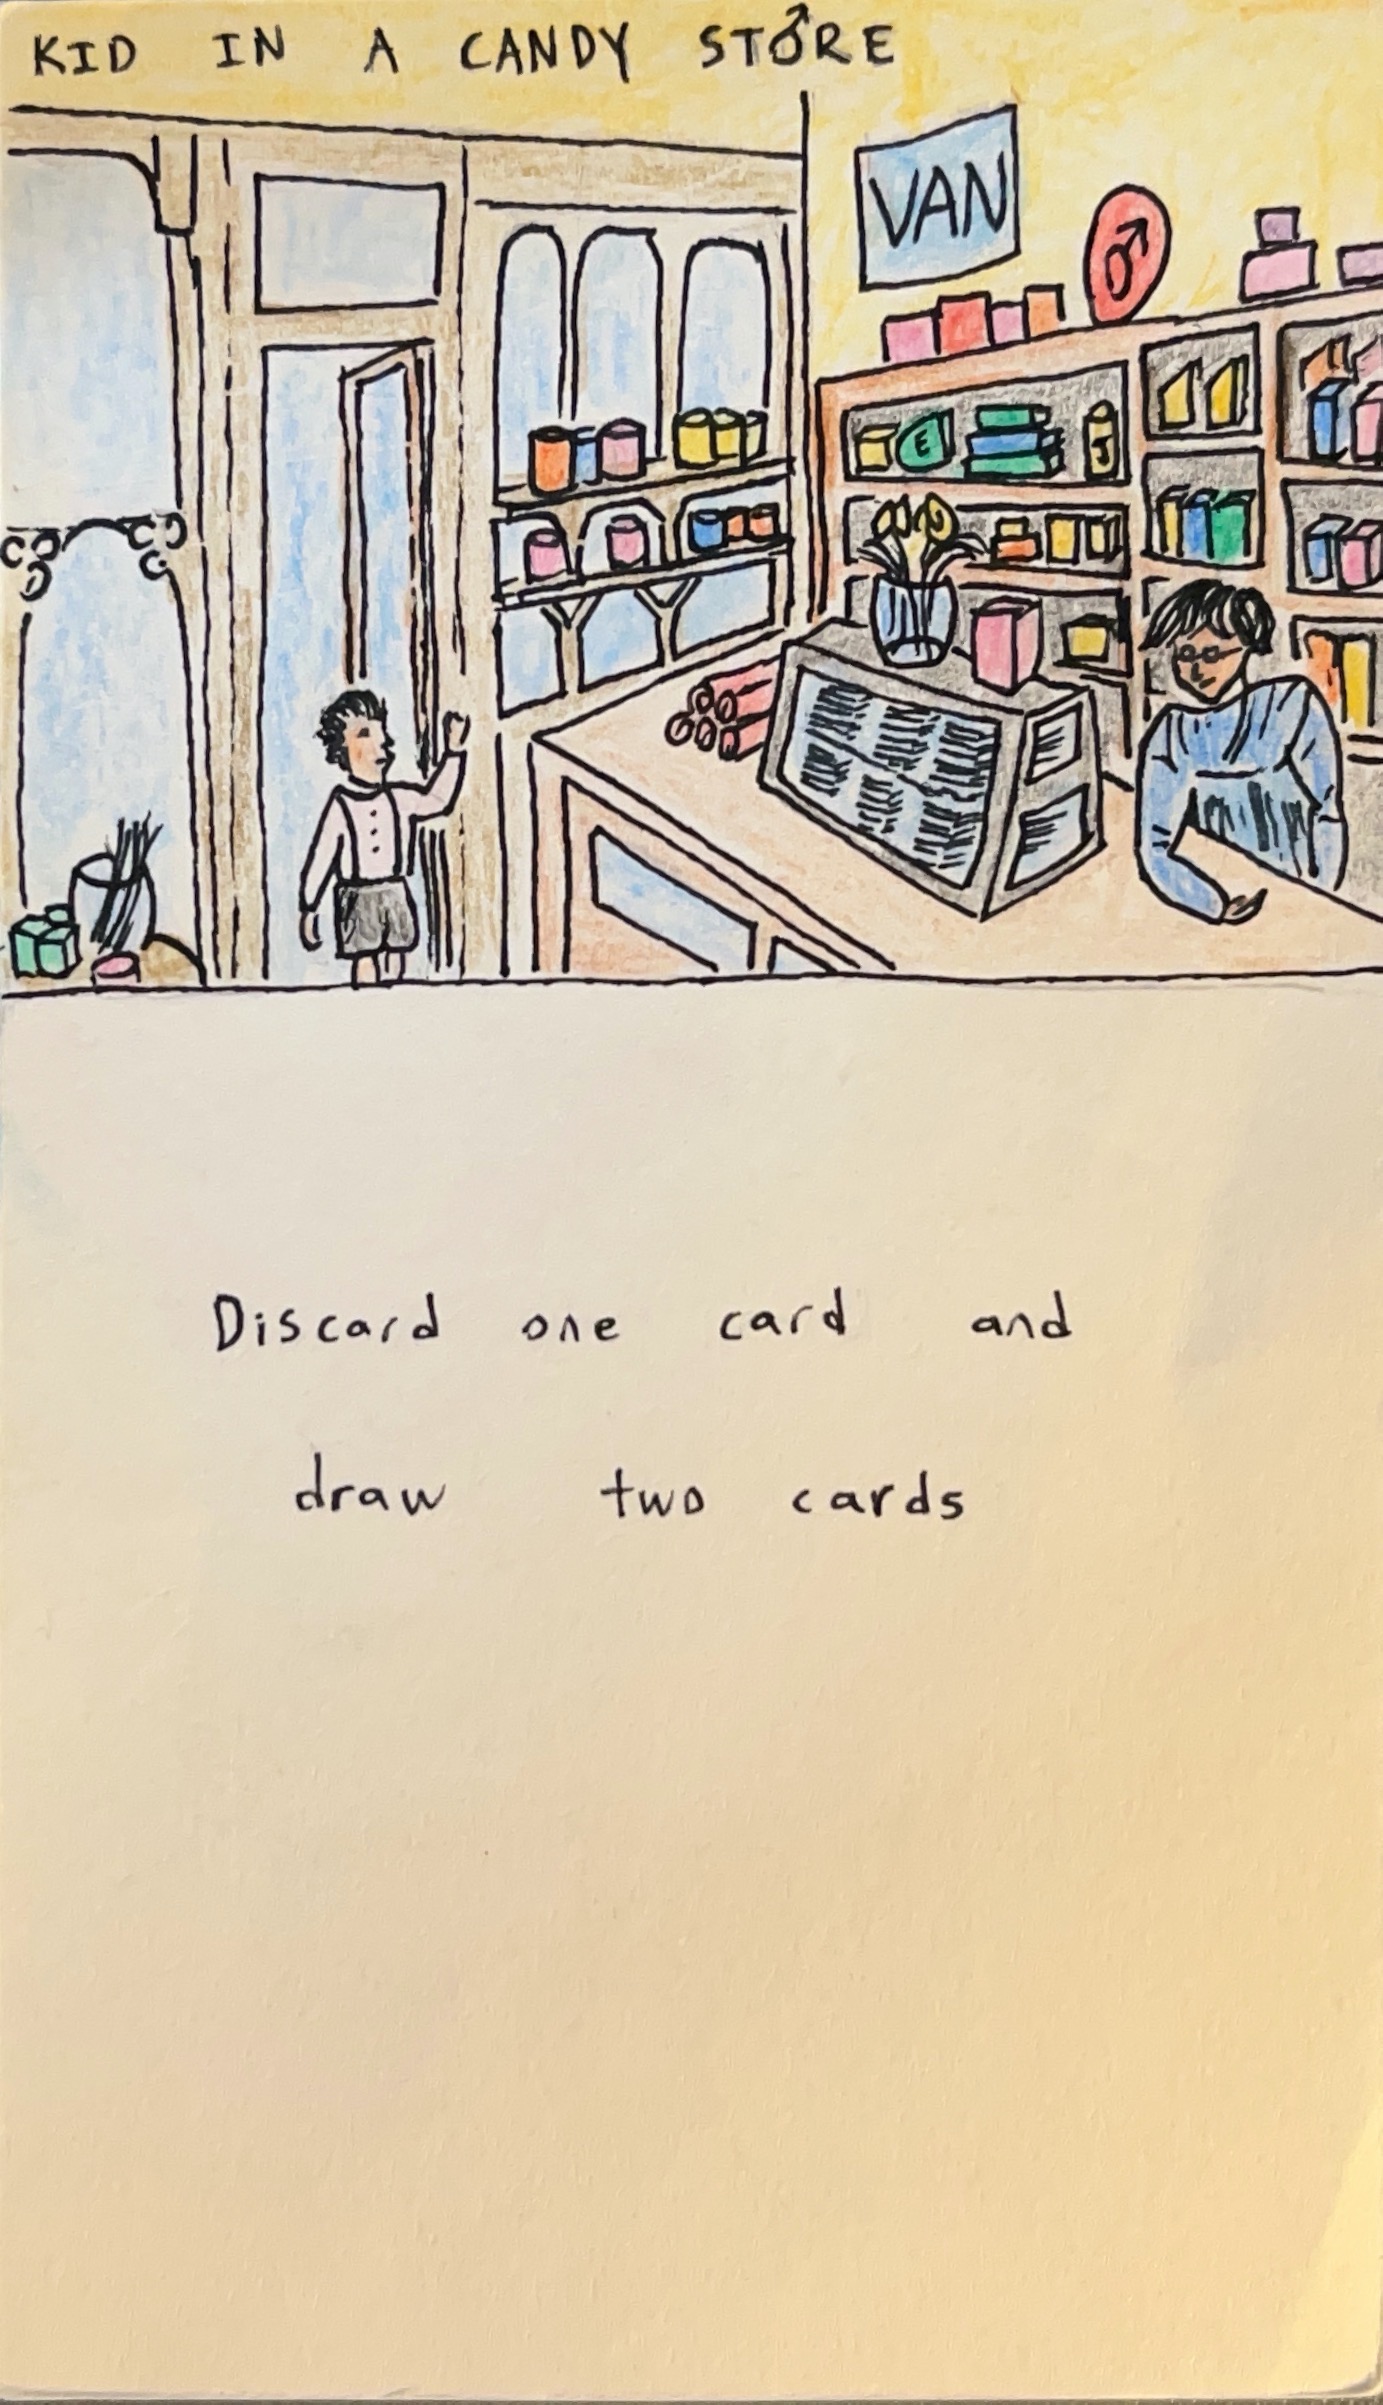 KID IN A CANDY ST♂RE
VAN
♂
E
J
Discard one card and
draw two cards